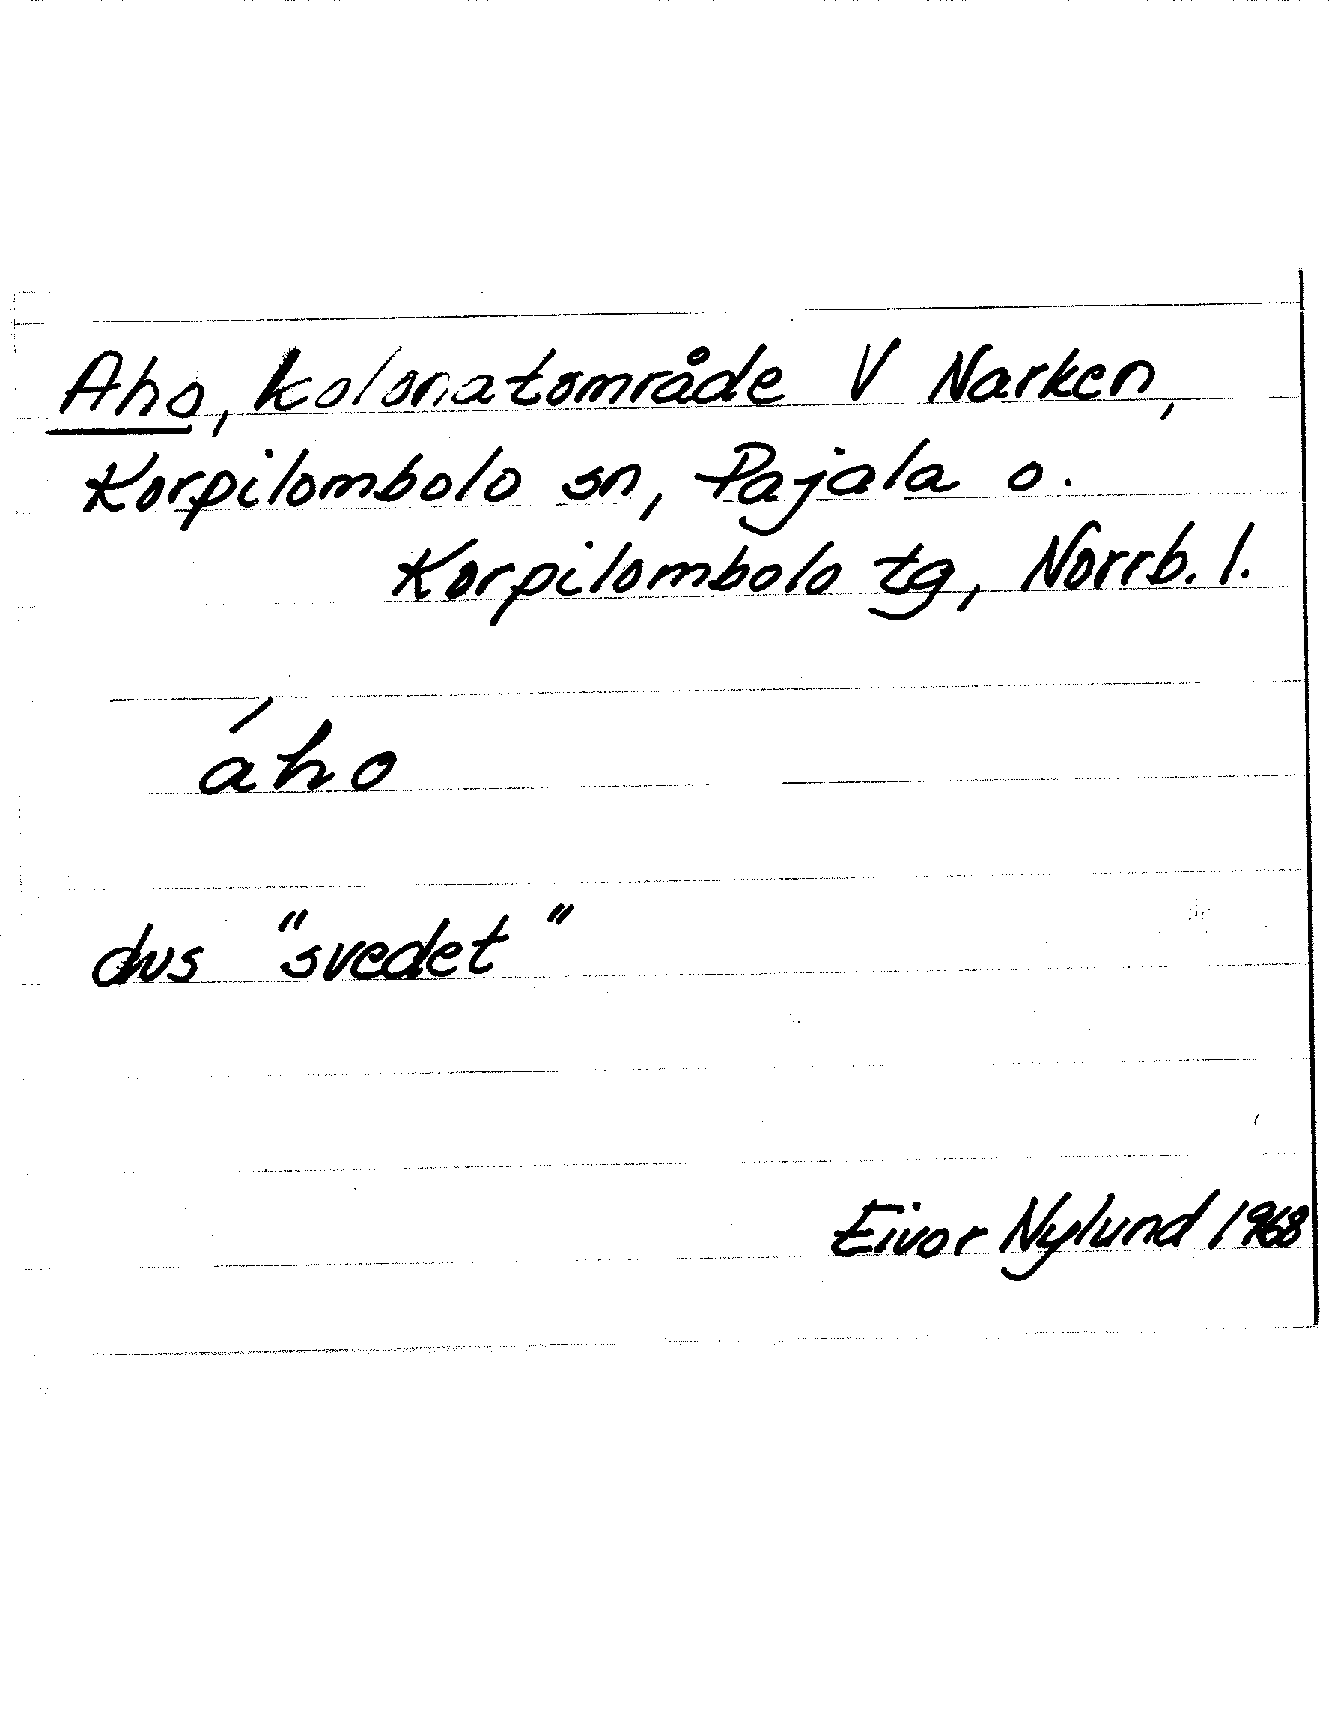 Aho, kolonatområde V Narken,
Korpilombolo sn, Pajala o.
Korpilombolo tg, Norrb. l.
áho
dvs "svedet"
Eivor Nylund 1968